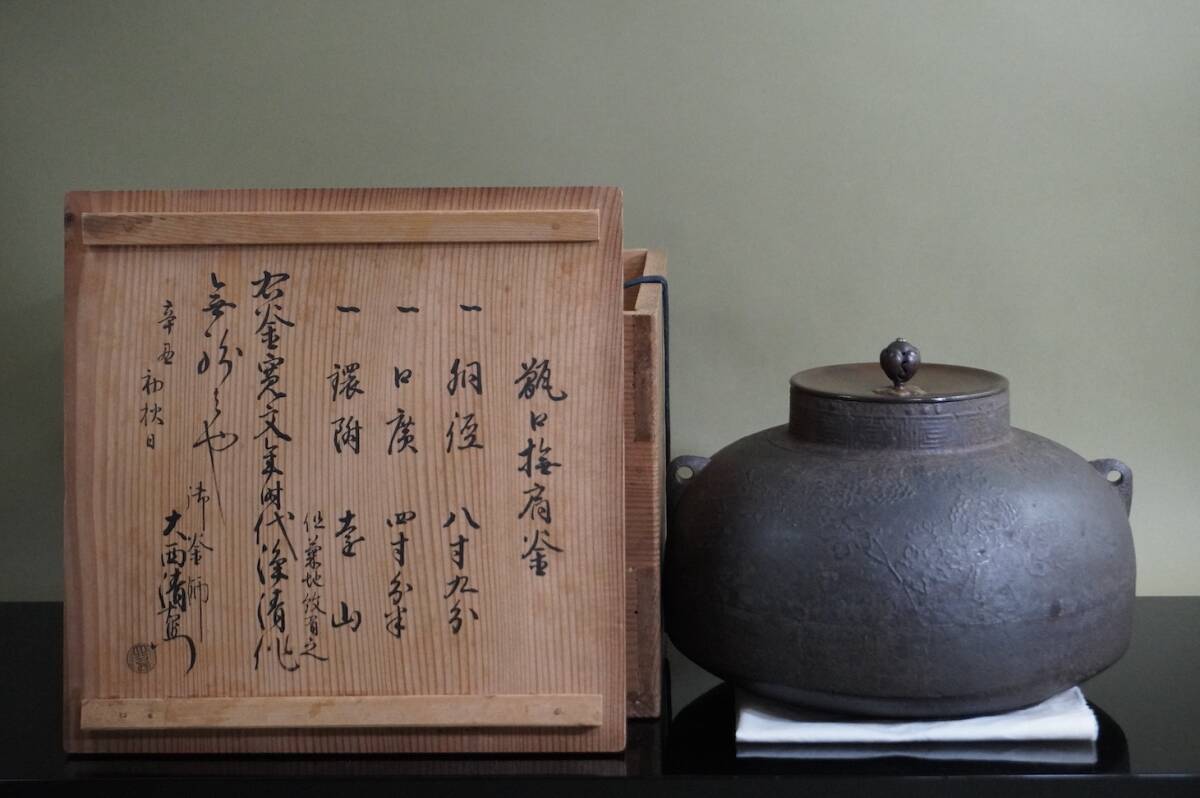 甑口撫肩釜
一 胴径 八寸九分
一 口廣 四寸分半
一 鐶附 遠山
但菊地紋有之
右釜寛文年時代浄清作
無紛也
御釜師
大西清
辛丑初秋日